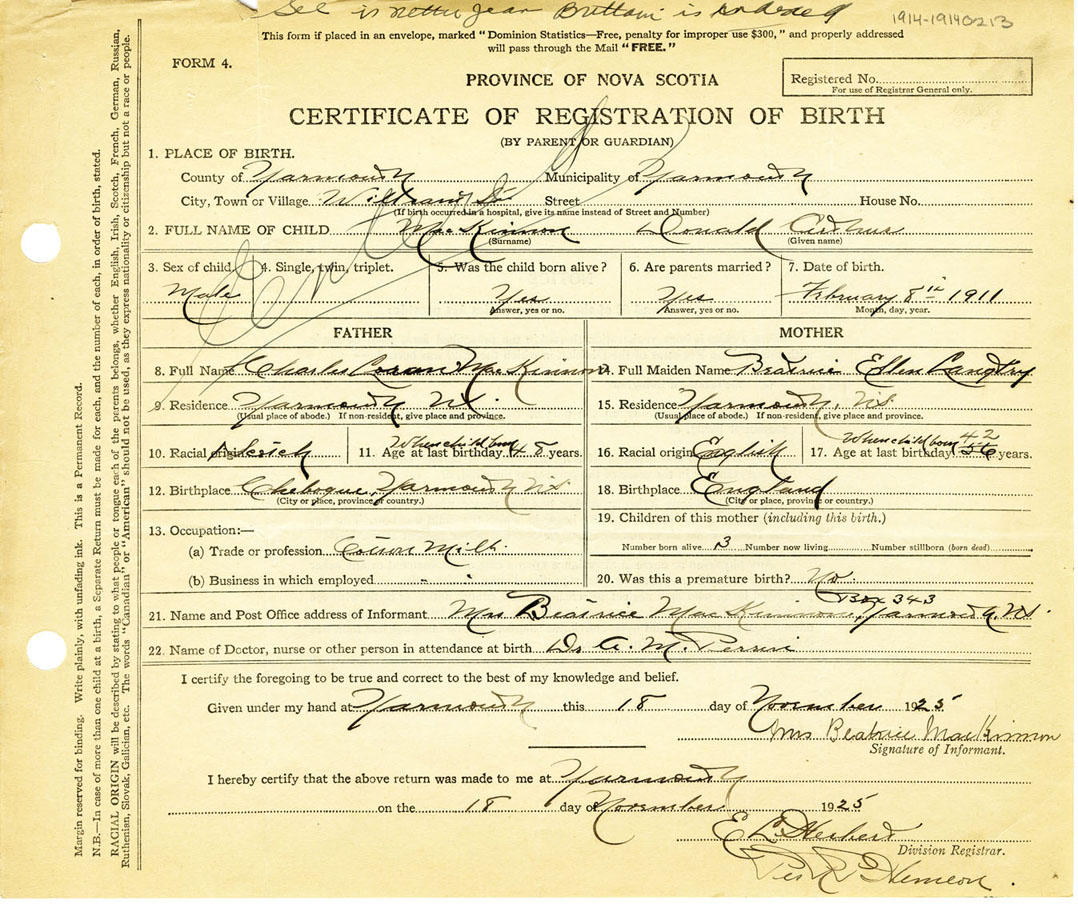 See is Jean is
1914-19140213
This form if placed in an envelope, marked "Dominion Statistics—Free, penalty for improper use $300," and properly addressed
will pass through the Mail "FREE."
FORM 4.
PROVINCE OF NOVA SCOTIA
Registered No.
For use of Registrar General only.
CERTIFICATE OF REGISTRATION OF BIRTH
(BY PARENT OR GUARDIAN)
1. PLACE OF BIRTH.
County of Yarmouth Municipality of Yarmouth
City, Town or Village Street House No.
(If birth occurred in a hospital, give its name instead of Street and Number)
2. FULL NAME OF CHILD MacKinnon Donald Arthur
(Surname) (Given name)
3. Sex of child. 4. Single, twin, triplet. 5. Was the child born alive? 6. Are parents married? 7. Date of birth.
Male Yes Yes February 8th 1911
Answer, yes or no. Answer, yes or no. Month, day, year.
FATHER MOTHER
8. Full Name Charles MacKinnon 14. Full Maiden Name Beatrice Ellen Langtry
9. Residence Yarmouth N.S. 15. Residence Yarmouth, N.S.
(Usual place of abode.) If non-resident, give place and province. (Usual place of abode.) If non-resident, give place and province.
When child born When child born 42
10. Racial origin 11. Age at last birthday. 48 years. 16. Racial origin English 17. Age at last birthday 56 years.
12. Birthplace Chebogue, Yarmouth N.S. 18. Birthplace England
(City or place, province or country.) (City or place, province or country.)
13. Occupation:— 19. Children of this mother (including this birth.)
(a) Trade or profession Cotton Mill. Number born alive 3 Number now living Number stillborn (born dead)
(b) Business in which employed - . 20. Was this a premature birth? No.
Box 343
21. Name and Post Office address of Informant Mrs Beatrice MacKinnon, Yarmouth, N.S.
22. Name of Doctor, nurse or other person in attendance at birth Dr. A. M. Perrin
I certify the foregoing to be true and correct to the best of my knowledge and belief.
Given under my hand at Yarmouth this 18 day of November 1925
Mrs Beatrice MacKinnon
Signature of Informant.
I hereby certify that the above return was made to me at Yarmouth
on the 18 day of November 1925
E L Herbert
Division Registrar.
Per
Margin reserved for binding. Write plainly, with unfading ink. This is a Permanent Record.
N.B.—In case of more than one child at a birth, a Separate Return must be made for each, and the number of each, in order of birth, stated.
RACIAL ORIGIN will be described by stating to what people or tongue each of the parents belongs, whether English, Irish, Scotch, French, German, Russian,
Ruthenian, Slovak, Galician, etc. The words "Canadian" or "American" should not be used, as they express nationality or citizenship but not a race or people.